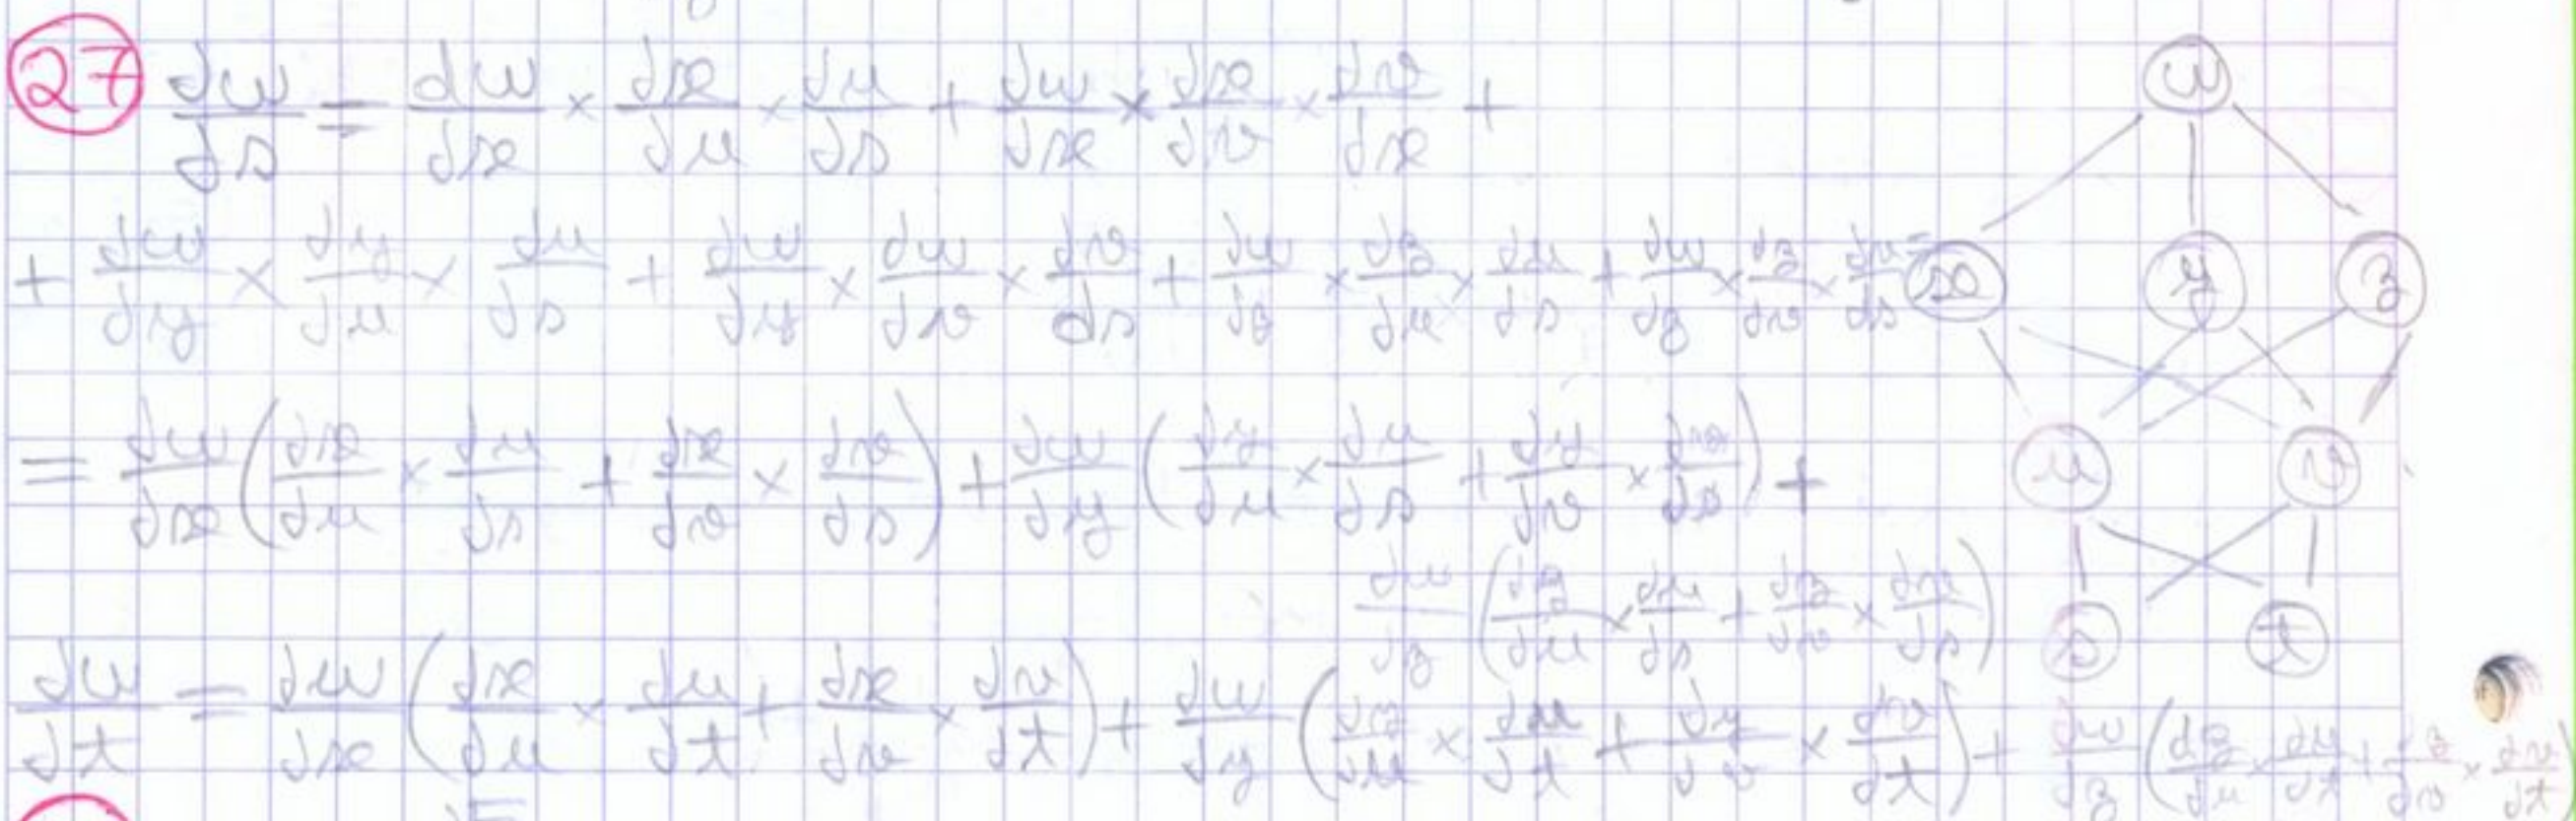 27 ∂w/∂s = ∂w/∂x × ∂x/∂u × ∂u/∂s + ∂w/∂x × ∂x/∂v × ∂v/∂x +
+ ∂w/∂y × ∂y/∂u × ∂u/∂s + ∂w/∂y × ∂w/∂v × ∂v/∂s + ∂w/∂z × ∂z/∂u × ∂u/∂s + ∂w/∂z × ∂z/∂v × ∂v/∂s =
= ∂w/∂x (∂x/∂u × ∂u/∂s + ∂x/∂v × ∂v/∂s) + ∂w/∂y (∂y/∂u × ∂u/∂s + ∂y/∂v × ∂v/∂s) +
∂w/∂z (∂z/∂u × ∂u/∂s + ∂z/∂v × ∂v/∂s)
∂w/∂t = ∂w/∂x (∂x/∂u × ∂u/∂t + ∂x/∂v × ∂v/∂t) + ∂w/∂y (∂y/∂u × ∂u/∂t + ∂y/∂v × ∂v/∂t) + ∂w/∂z (∂z/∂u × ∂u/∂t + ∂z/∂v × ∂v/∂t)
w
x y z
u v
s t